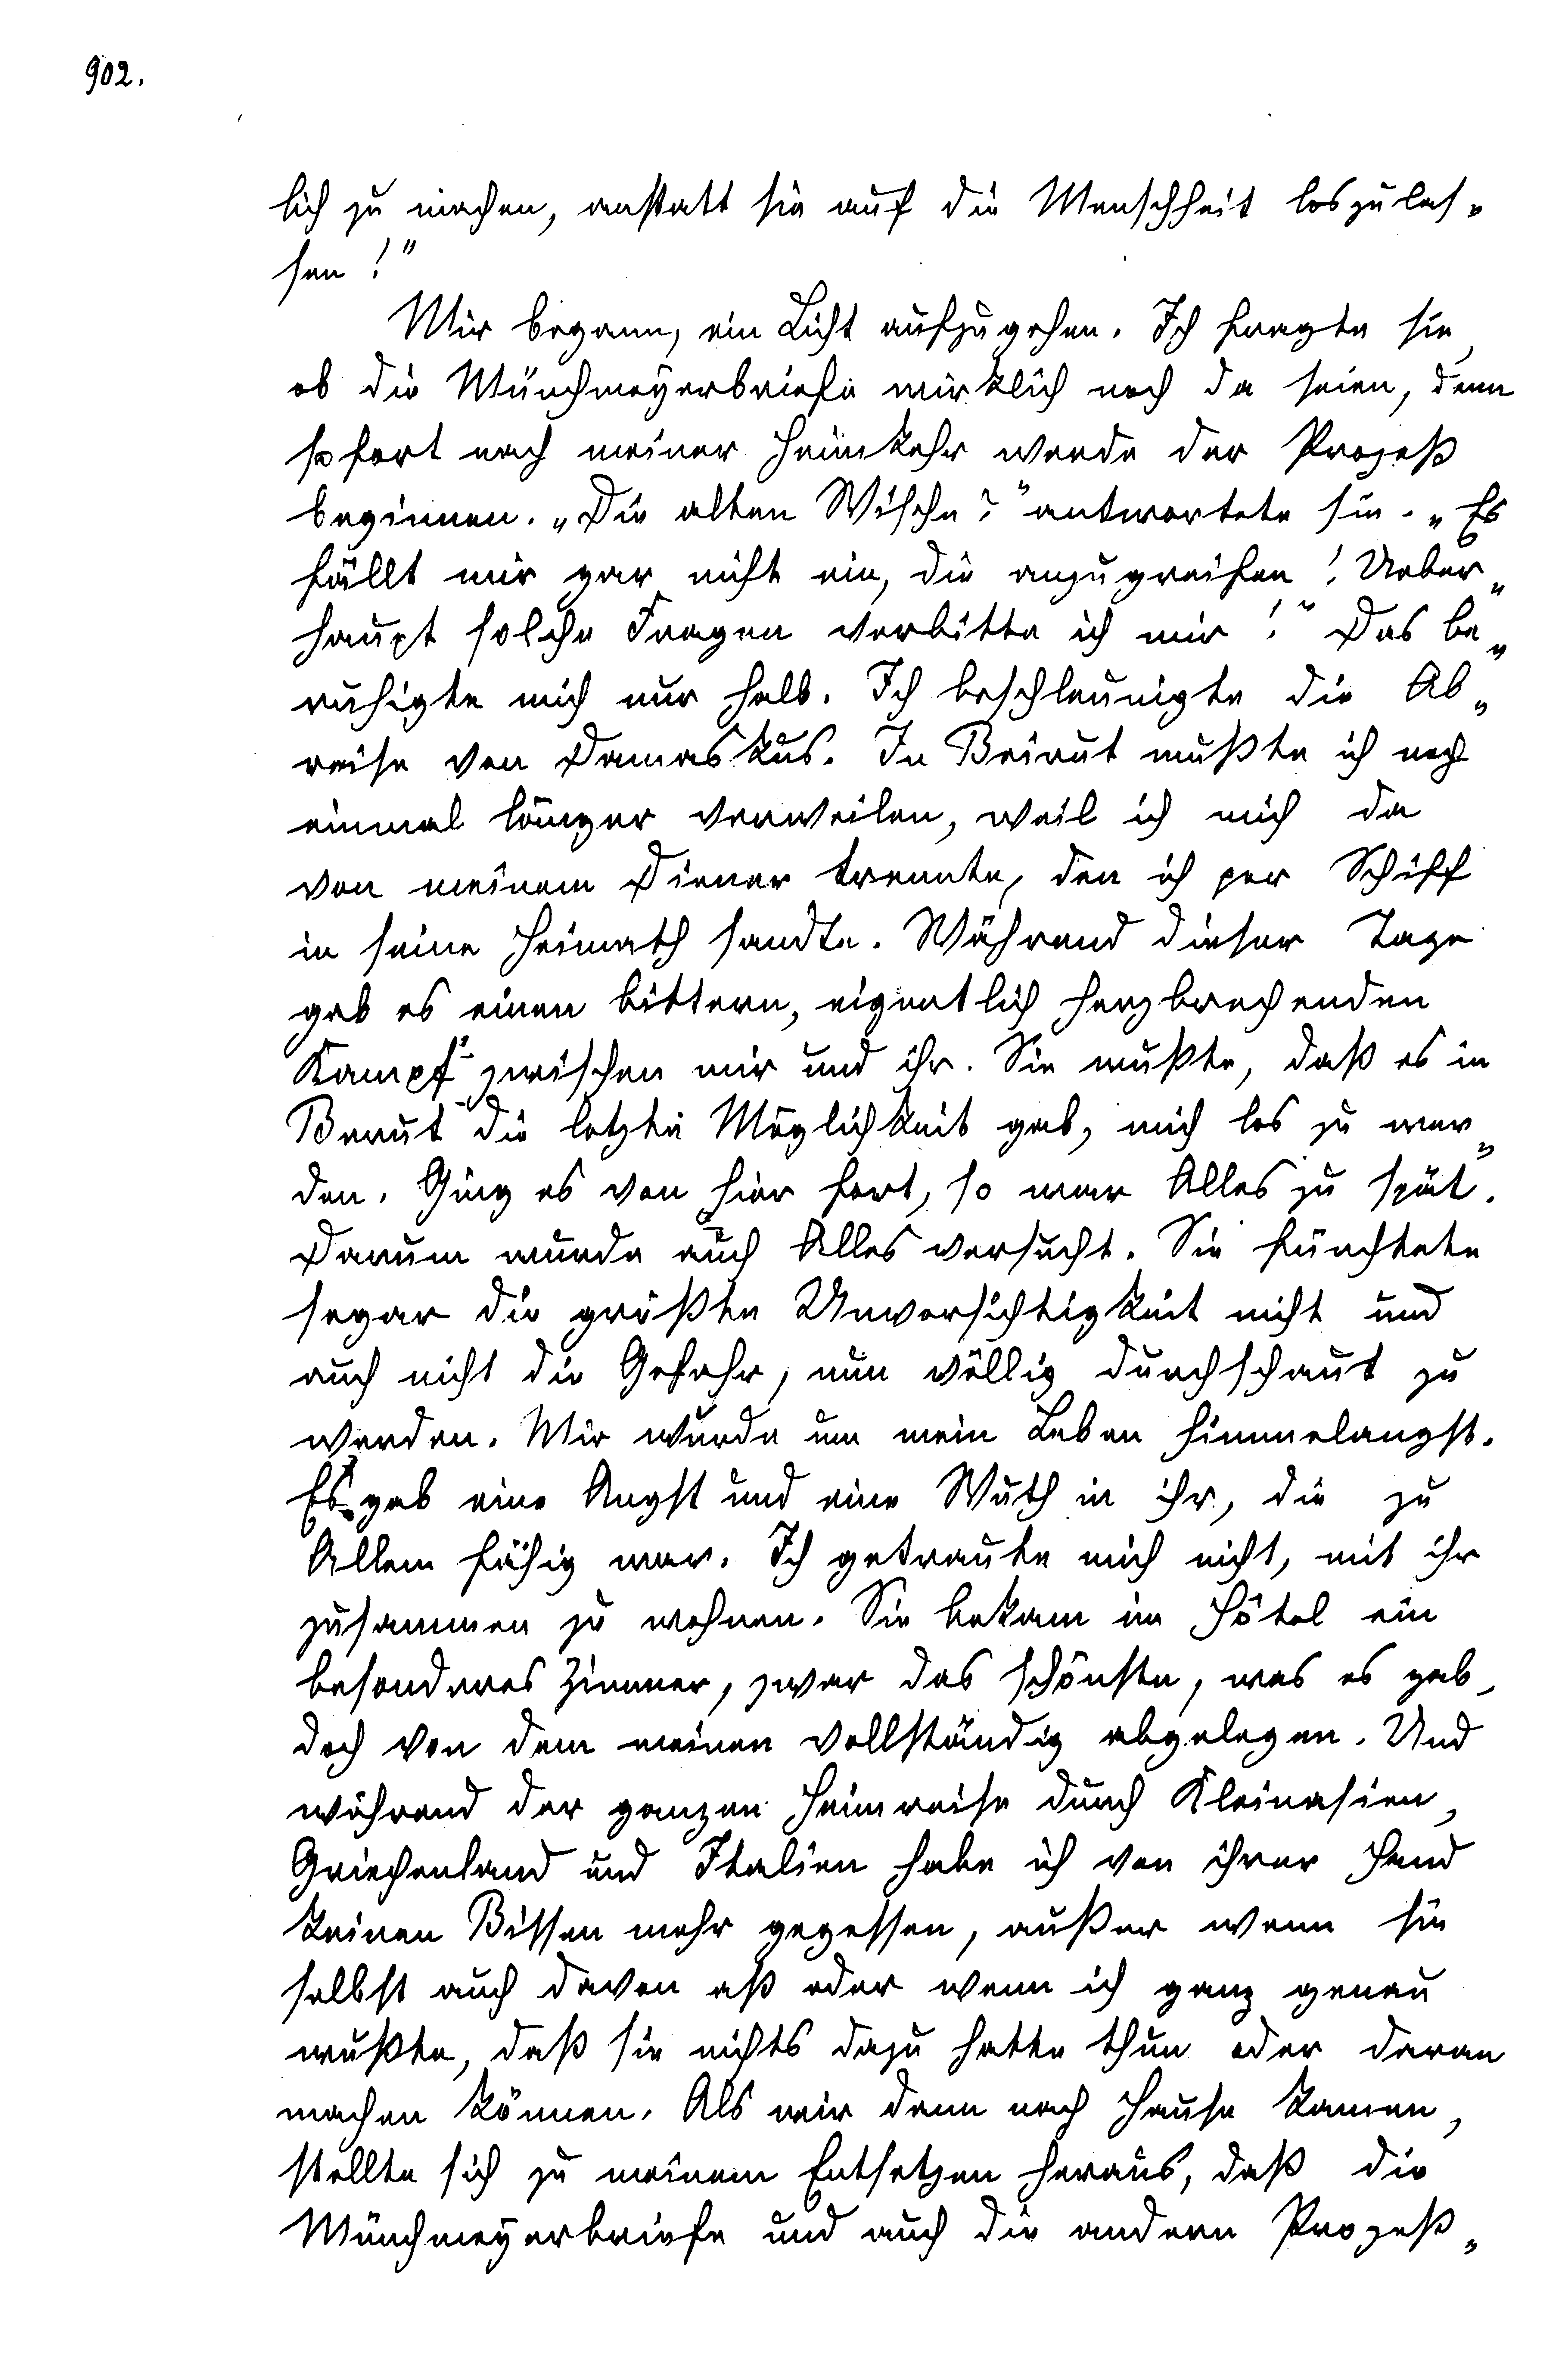 902.
lich zu machen, anstatt sie auf die Menschheit loszulas„
sen!"
Mir begann, ein Licht aufzugehen. Ich fragte sie,
ob die Münchmeyerbriefe wirklich noch da seien, denn
sofort nach meiner Heimkehr werde der Prozeß
beginnen. „Die alten Wische?" antwortete sie. „Es
fällt mir gar nicht ein, die anzugreifen! Ueber„
haupt solche Fragen verbitte ich mir!" Das be„
ruhigte mich nur halb. Ich beschleunigte die Ab„
reise von Damaskus. In Beirut mußte ich noch
einmal länger verweilen, weil ich mich da
von meinem Diener trennte, den ich per Schiff
in seine Heimath sandte. Während dieser Tage
gab es einen bittern, eigentlich herzbrechenden
Kampf zwischen mir und ihr. Sie wußte, daß es in
Berut die letzte Möglichkeit gab, mich los zu wer„
den. Ging es von hier fort, so war Alles zu spät.
Darum wurde auch Alles versucht. Sie fürchtete
sogar die größte Unvorsichtigkeit nicht und
auch nicht die Gefahr, nun völlig durchschaut zu
werden. Mir wurde um mein Leben himmelangst.
Es gab eine Angst und eine Wuth in ihr, die zu
Allem fähig war. Ich getraute mich nicht, mit ihr
zusammen zu wohnen. Sie bekam im Hôtel ein
besonderes Zimmer, zwar das schönste, was es gab,
doch von dem meinen vollständig abgelegen. Und
während der ganzen Heimreise durch Kleinasien,
Griechenland und Italien habe ich von ihrer Hand
keinen Bissen mehr gegessen, außer wenn sie
selbst auch davon aß oder wenn ich ganz genau
wußte, daß sie nichts dazu hatte thun oder daran
machen können. Als wir dann nach Hause kamen,
stellte sich zu meinem Entsetzen heraus, daß die
Münchmeyerbriefe und auch die andern Prozeß„